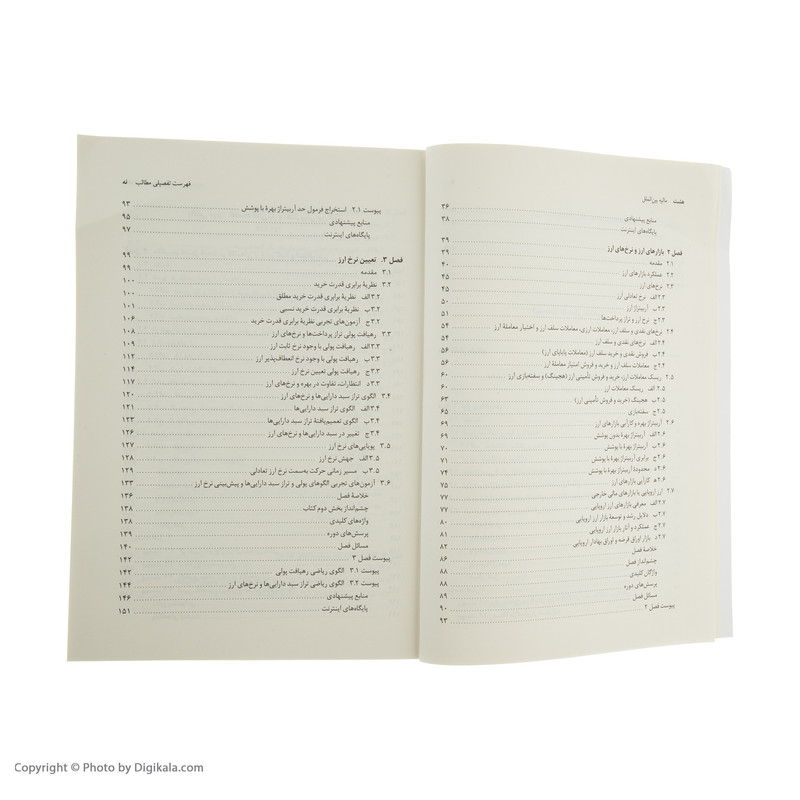 هشت مالیه بین‌الملل
۳۶
منابع پیشنهادی ۳۸
پایگاه‌های اینترنت
۳۹
فصل ۲ بازارهای ارز و نرخ‌های ارز ۳۹
۲.۱ مقدمه ۴۰
۲.۲ عملکرد بازارهای ارز ۴۵
۲.۳ نرخ‌های ارز ۴۵
۲.۳الف نرخ تعادلی ارز ۵۰
۲.۳ب آربیتراژ ارز ۵۱
۲.۳ج نرخ ارز و تراز پرداخت‌ها
۲.۴ نرخ‌های نقدی و سلف ارز، معاملات ارزی، معاملات سلف ارز و اختیار معاملهٔ ارز ۵۴
۲.۴الف نرخ‌های نقدی و سلف ارز ۵۴
۲.۴ب فروش نقدی و خرید سلف ارز (معاملات پایاپای ارز) ۵۶
۲.۴ج معاملات سلف ارز و خرید و فروش امتیاز معاملهٔ ارز ۵۶
۲.۵ ریسک معاملات ارز، خرید و فروش تأمینی ارز (هجینگ) و سفته‌بازی ارز ۶۰
۲.۵الف ریسک معاملات ارز ۶۰
۲.۵ب هجینگ (خرید و فروش تأمینی ارز) ۶۳
۲.۵ج سفته‌بازی ۶۵
۲.۶ آربیتراژ بهره و کارآیی بازارهای ارز ۶۹
۲.۶الف آربیتراژ بهرهٔ بدون پوشش ۶۹
۲.۶ب آربیتراژ بهرهٔ با پوشش ۷۰
۲.۶ج برابری آربیتراژ بهرهٔ با پوشش ۷۱
۲.۶د محدودهٔ آربیتراژ بهرهٔ با پوشش ۷۴
۲.۶ه کارآیی بازارهای ارز ۷۵
۲.۷ ارز اروپایی یا بازارهای مالی خارجی ۷۷
۲.۷الف معرفی بازارهای ارز اروپایی ۷۷
۲.۷ب دلایل رشد و توسعهٔ بازار ارز اروپایی ۸۰
۲.۷ج عملکرد و آثار بازار ارز اروپایی ۸۱
۲.۷د بازار اوراق قرضه و اوراق بهادار اروپایی ۸۲
خلاصهٔ فصل ۸۶
چشم‌انداز فصل ۸۸
واژگان کلیدی ۸۸
پرسش‌های دوره ۸۸
مسائل فصل ۸۹
پیوست فصل ۲ ۹۰
۹۳
فهرست تفصیلی مطالب نه
پیوست ۲.۱ استخراج فرمول حد آربیتراژ بهرهٔ با پوشش ۹۳
منابع پیشنهادی ۹۵
پایگاه‌های اینترنت ۹۷
فصل ۳. تعیین نرخ ارز ۹۹
۳.۱ مقدمه ۹۹
۳.۲ نظریهٔ برابری قدرت خرید ۱۰۰
۳.۲الف نظریهٔ برابری قدرت خرید مطلق ۱۰۰
۳.۲ب نظریهٔ برابری قدرت خرید نسبی ۱۰۱
۳.۲ج آزمون‌های تجربی نظریهٔ برابری قدرت خرید ۱۰۶
۳.۳ رهیافت پولی تراز پرداخت‌ها و نرخ‌های ارز ۱۰۸
۳.۳الف رهیافت پولی با وجود نرخ ثابت ارز ۱۰۹
۳.۳ب رهیافت پولی با وجود نرخ انعطاف‌پذیر ارز ۱۱۲
۳.۳ج رهیافت پولی تعیین نرخ ارز ۱۱۴
۳.۳د انتظارات، تفاوت در بهره و نرخ‌های ارز ۱۱۷
۳.۴ الگوی تراز سبد دارایی‌ها و نرخ‌های ارز ۱۲۰
۳.۴الف الگوی تراز سبد دارایی‌ها ۱۲۱
۳.۴ب الگوی تعمیم‌یافتهٔ تراز سبد دارایی‌ها ۱۲۳
۳.۴ج تغییر در سبد دارایی‌ها و نرخ‌های ارز ۱۲۶
۳.۵ پویایی‌های نرخ ارز ۱۲۷
۳.۵الف جهش نرخ ارز ۱۲۸
۳.۵ب مسیر زمانی حرکت به‌سمت نرخ ارز تعادلی ۱۲۹
۳.۶ آزمون‌های تجربی الگوهای پولی و تراز سبد دارایی‌ها و پیش‌بینی نرخ ارز ۱۳۳
خلاصهٔ فصل ۱۳۶
چشم‌انداز بخش دوم کتاب ۱۳۸
واژه‌های کلیدی ۱۳۸
پرسش‌های دوره ۱۳۹
مسائل فصل ۱۴۰
پیوست فصل ۳ ۱۴۲
پیوست ۳.۱ الگوی ریاضی رهیافت پولی ۱۴۲
پیوست ۳.۲ الگوی ریاضی تراز سبد دارایی‌ها و نرخ‌های ارز ۱۴۴
منابع پیشنهادی ۱۴۶
پایگاه‌های اینترنت ۱۵۱
Copyright © Photo by Digikala.com